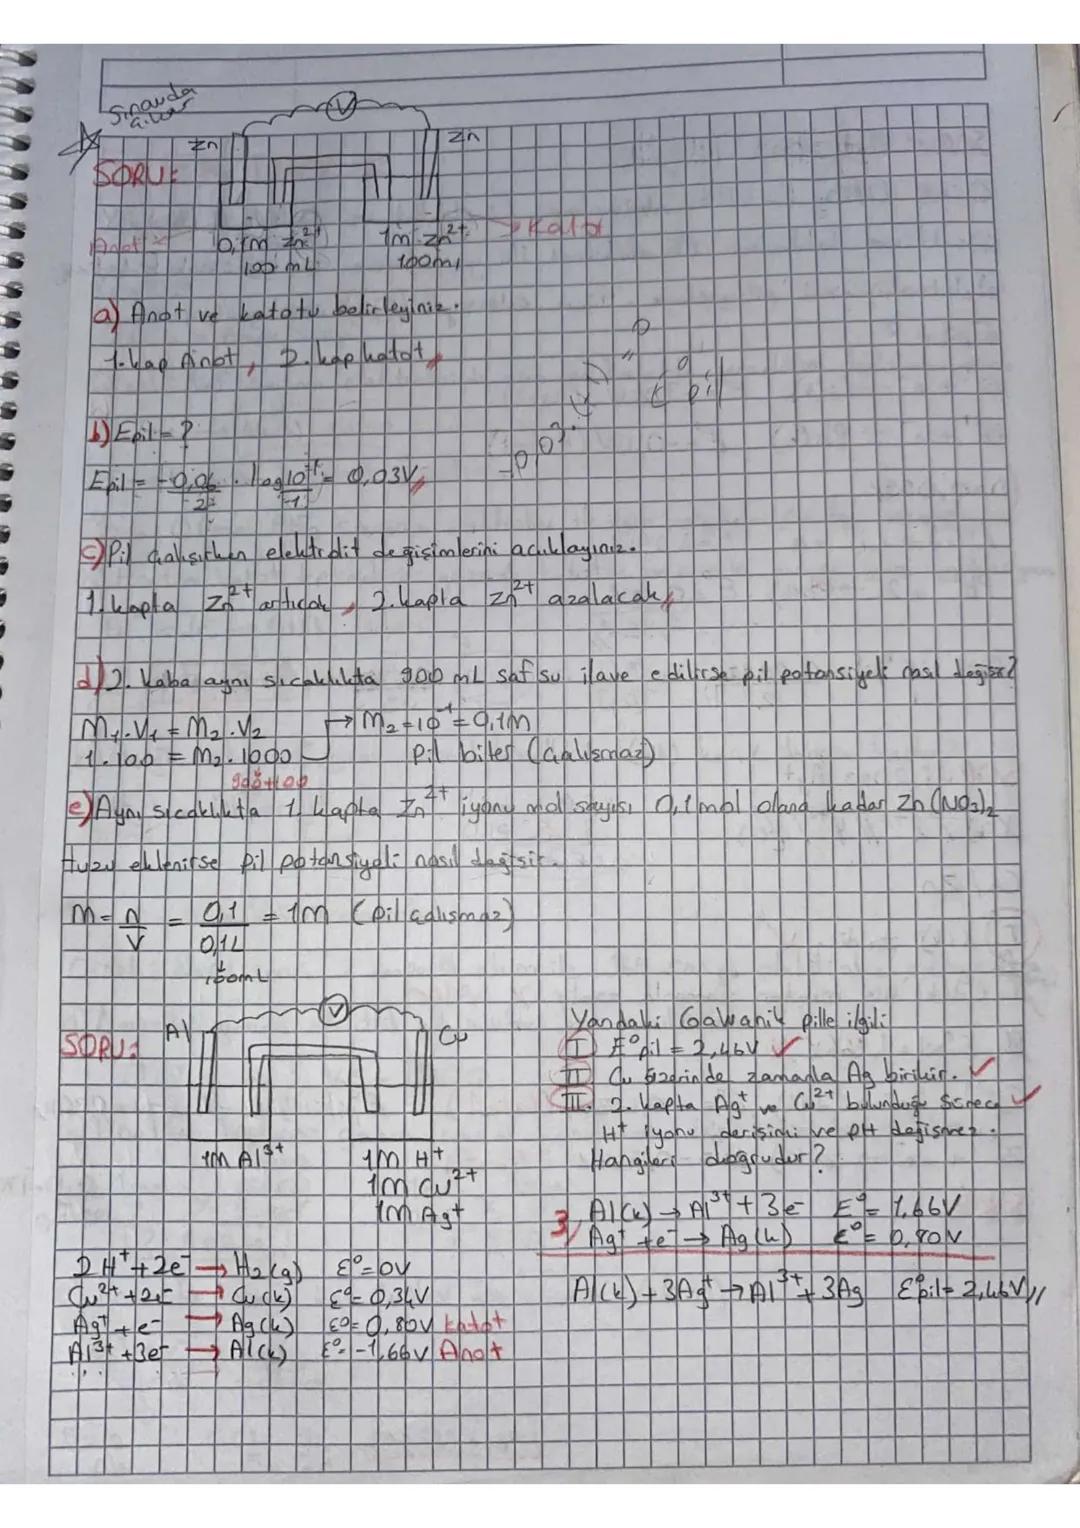 Sınavda
SORU:
Zn
V
Zn
Anot
0,1M Zn²⁺
100 mL
1M Zn²⁺
100mL
→ Katot
a) Anot ve katotu belirleyiniz.
1. kap Anot, 2. kap katot
b) Epil = ?
Epil = -0,06/2 . log10⁻¹ = 0,03V
-1
c) Pil çalışırken elektrolit değişimlerini açıklayınız.
1. kapta Zn²⁺ artacak, 2. kapta Zn²⁺ azalacak
d) 2. kaba aynı sıcaklıkta 900 mL saf su ilave edilirse pil potansiyeli nasıl değişir?
M₁.V₁ = M₂.V₂ → M₂ = 10⁻¹ = 0,1M
1.100 = M₂.1000 Pil biter (Çalışmaz)
900+100
e) Aynı sıcaklıkta 1. kapta Zn²⁺ iyonu mol sayısı 0,1 mol olana kadar Zn(NO₃)₂
tuzu eklenirse pil potansiyeli nasıl değişir.
M = n/V = 0,1/0,1L = 1M (Pil çalışmaz)
100mL
SORU:
Al
V
Cu
1M Al³⁺
1M H⁺
1M Cu²⁺
1M Ag⁺
Yandaki Galvanik pille ilgili
I E°pil = 2,46V ✓
II Cu üzerinde zamanla Ag birikir. ✓
III. 2. kapta Ag⁺ ve Cu²⁺ bulunduğu sürece ✓
H⁺ iyonu derişimi ve pH değişmez.
Hangileri doğrudur?
Al(k) → Al³⁺ + 3e⁻ E° = 1,66V
3/ Ag⁺ + e⁻ → Ag(k) E° = 0,80V
Al(k) + 3Ag⁺ → Al³⁺ + 3Ag E°pil = 2,46V//
2H⁺ + 2e⁻ → H₂(g) E° = 0V
Cu²⁺ + 2e⁻ → Cu(k) E° = 0,34V
Ag⁺ + e⁻ → Ag(k) E° = 0,80V Katot
Al³⁺ + 3e⁻ → Al(k) E° = -1,66V Anot